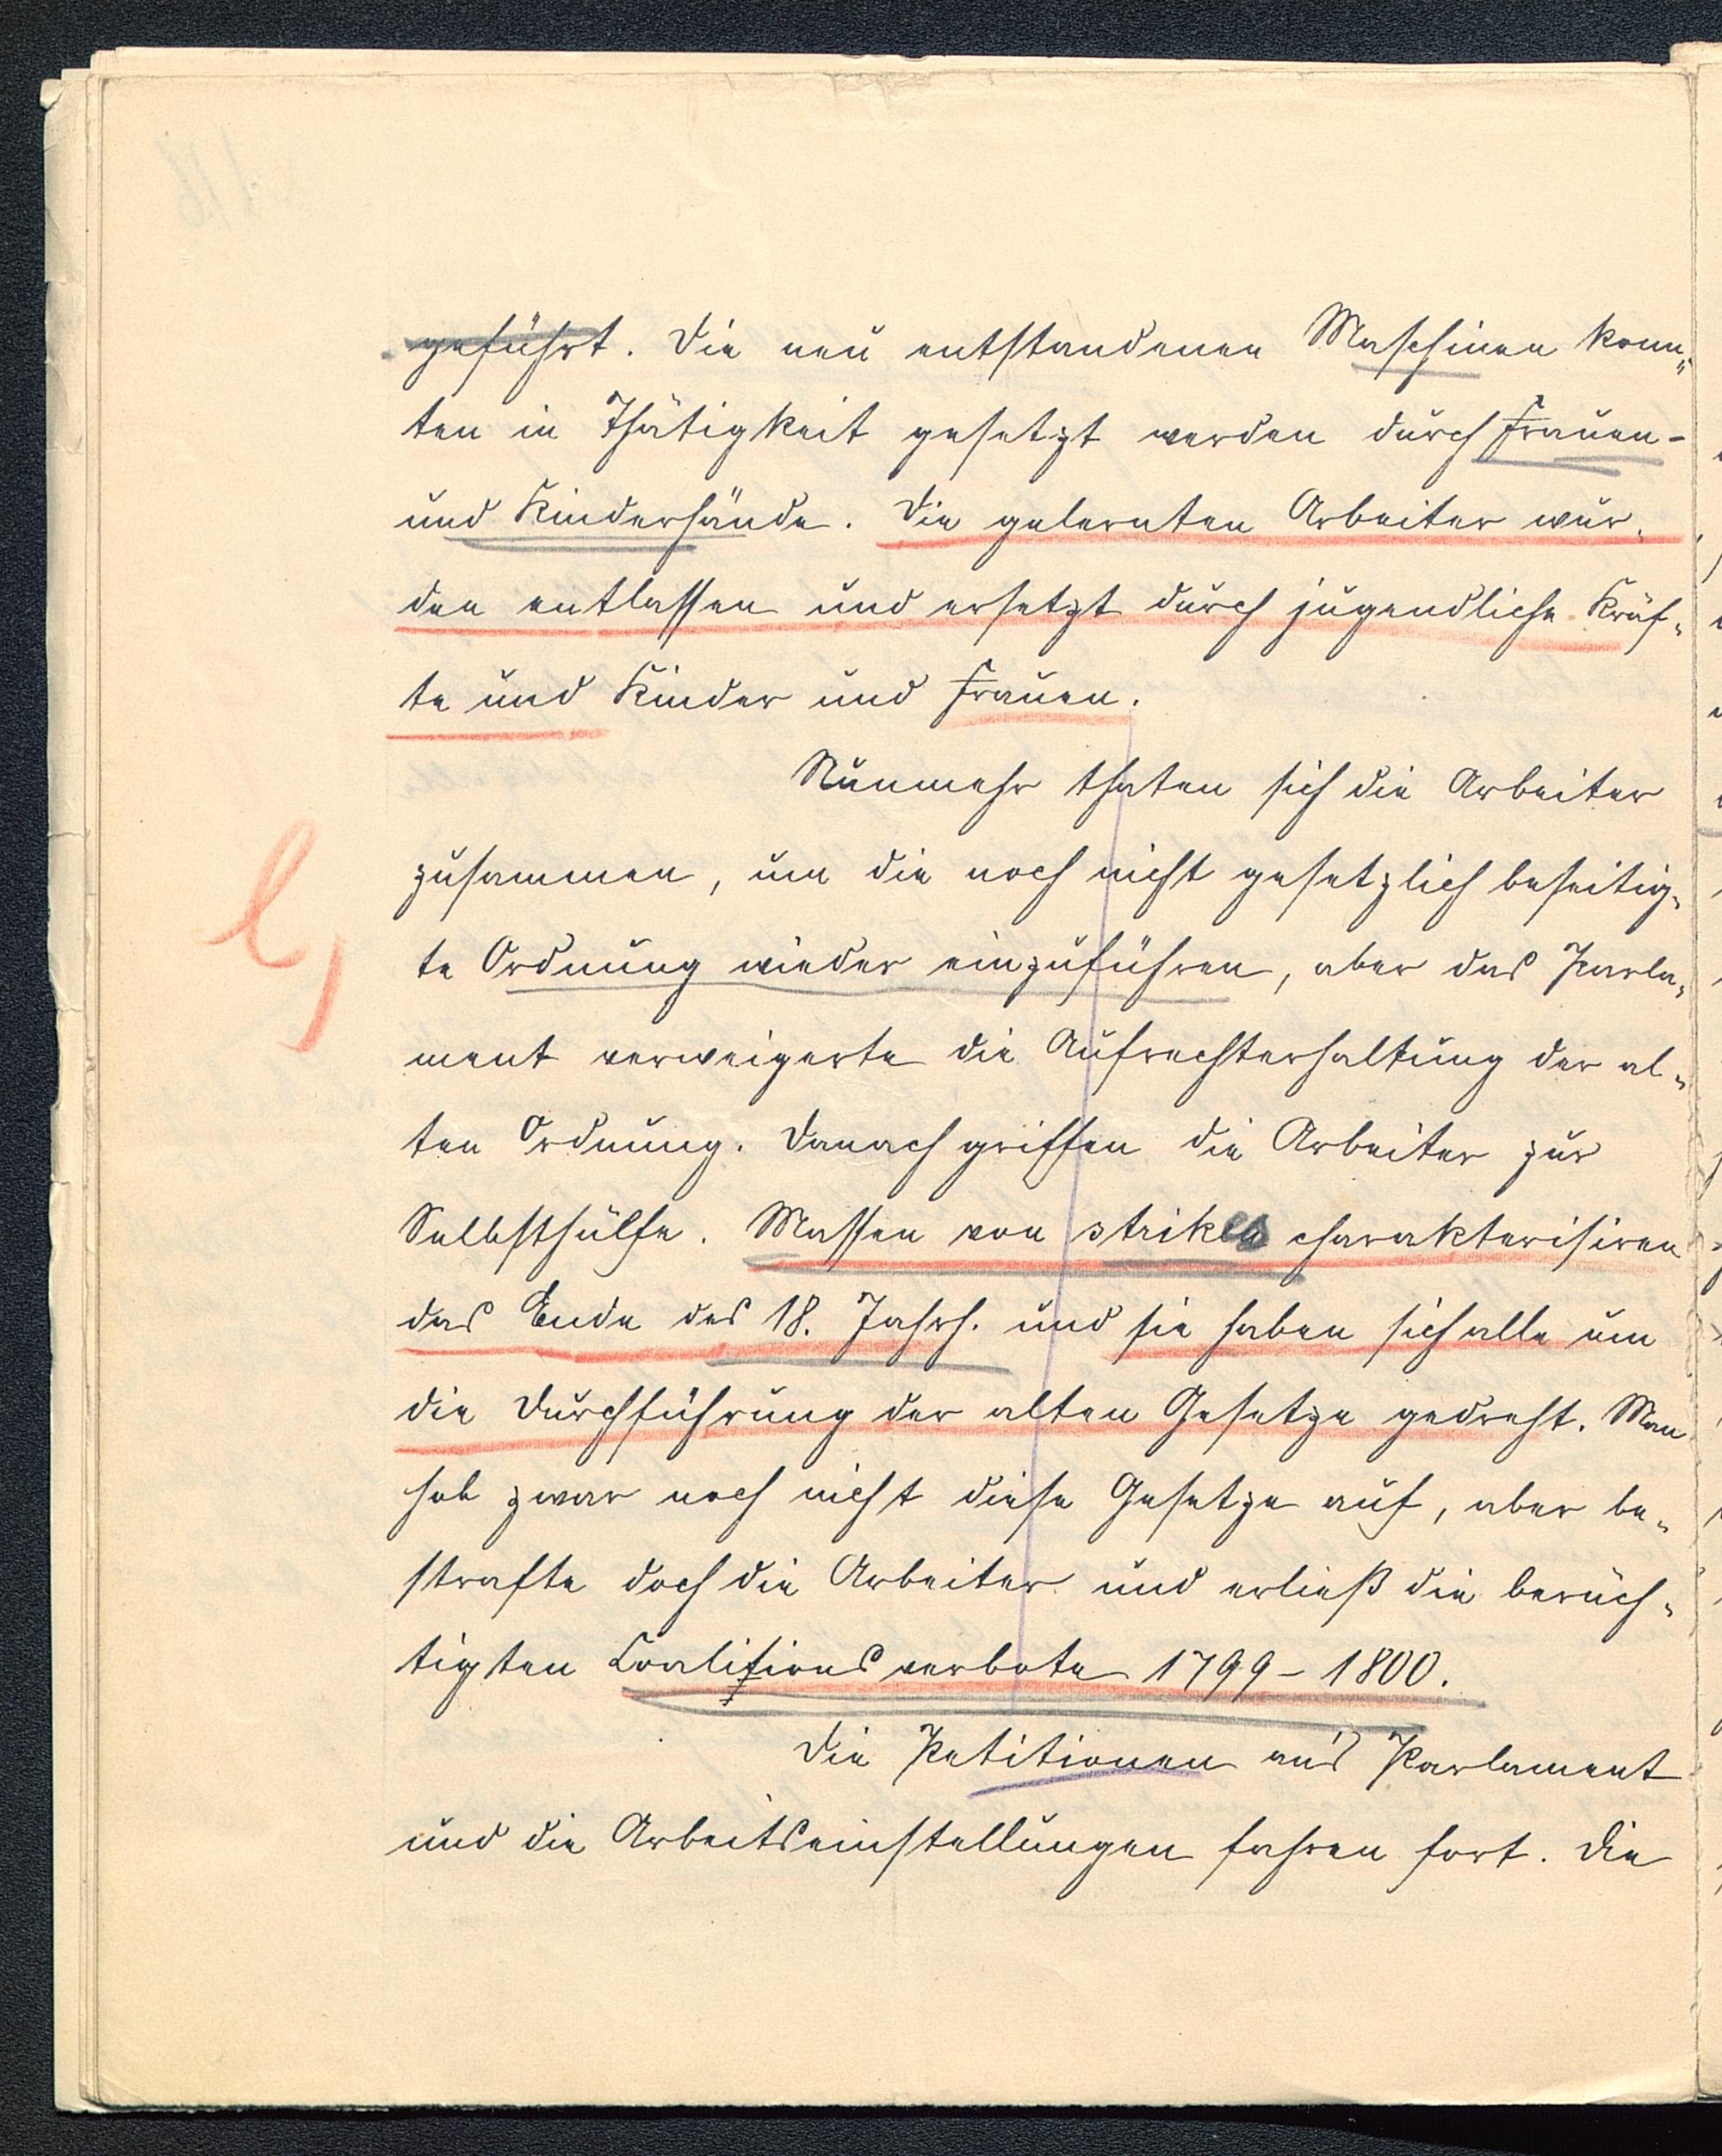 geführt. Die neu entstandenen Maschinen konn-
ten in Thätigkeit gesetzt werden durch Frauen-
und Kinderhände. Die gelernten Arbeiter wur-
den entlassen und ersetzt durch jugendliche Kräf-
te und Kinder und Frauen.
Nunmehr thaten sich die Arbeiter
zusammen, um die noch nicht gesetzlich beseitig-
te Ordnung wieder einzuführen, aber das Parla-
l)
ment verweigerte die Aufrechterhaltung der al-
ten Ordnung. Danach griffen die Arbeiter zur
Selbsthülfe. Massen von strikes charakterisiren
das Ende des 18. Jahrh. und sie haben sich alle um
die Durchführung der alten Gesetze gedreht. Man
hob zwar noch nicht diese Gesetze auf, aber be-
strafte doch die Arbeiter und erließ die berüch-
tigten Coalitionsverbote 1799-1800.
Die Petitionen an's Parlament
und die Arbeitseinstellungen fahren fort. Die